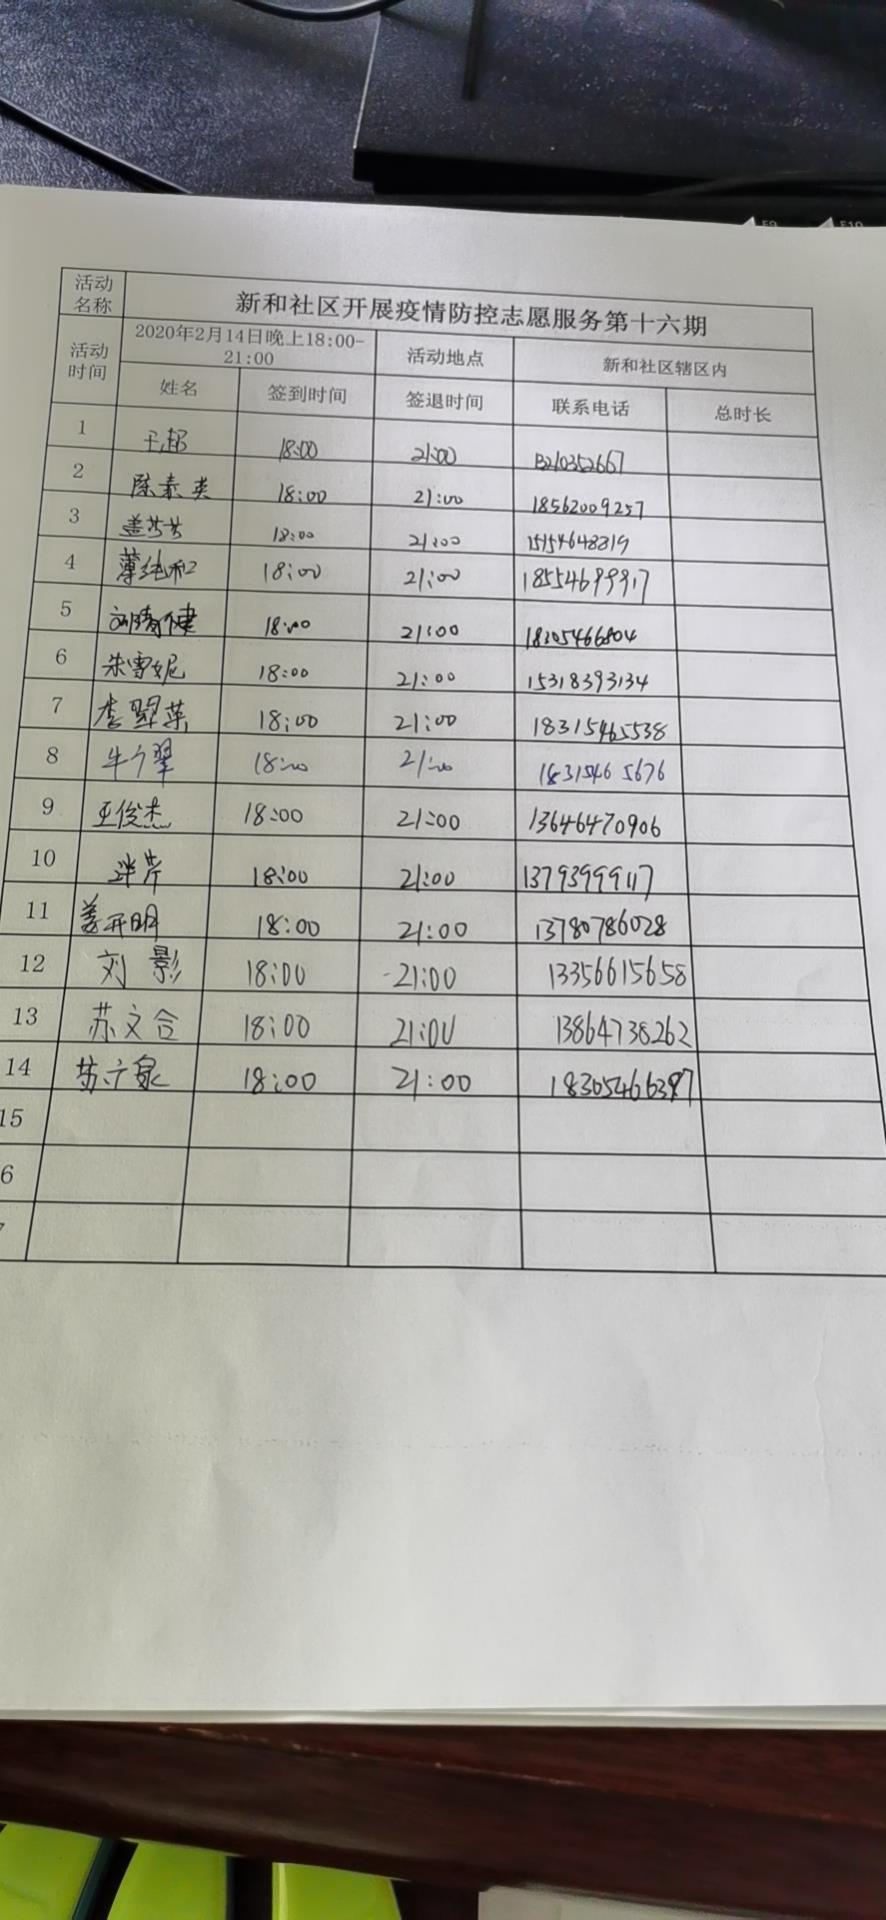 活动名称 新和社区开展疫情防控志愿服务第十六期
活动时间 2020年2月14日晚上18:00-21:00 活动地点 新和社区辖区内
姓名 签到时间 签退时间 联系电话 总时长
1 王超 18:00 21:00 13210352667
2 陈素英 18:00 21:00 18562009257
3 盖芳芳 18:00 21:00 15154648819
4 18:00 21:00 18554699917
5 18:00 21:00 18205466804
6 朱雪妮 18:00 21:00 15318393134
7 李翠英 18:00 21:00 18315465538
8 18:00 21:00 18315465676
9 王俊杰 18:00 21:00 13646470906
10 18:00 21:00 13793999117
11 姜开明 18:00 21:00 13780786028
12 刘影 18:00 21:00 13356615658
13 苏文合 18:00 21:00 13864738262
14 18:00 21:00 18305466397
15
6
F9 F10